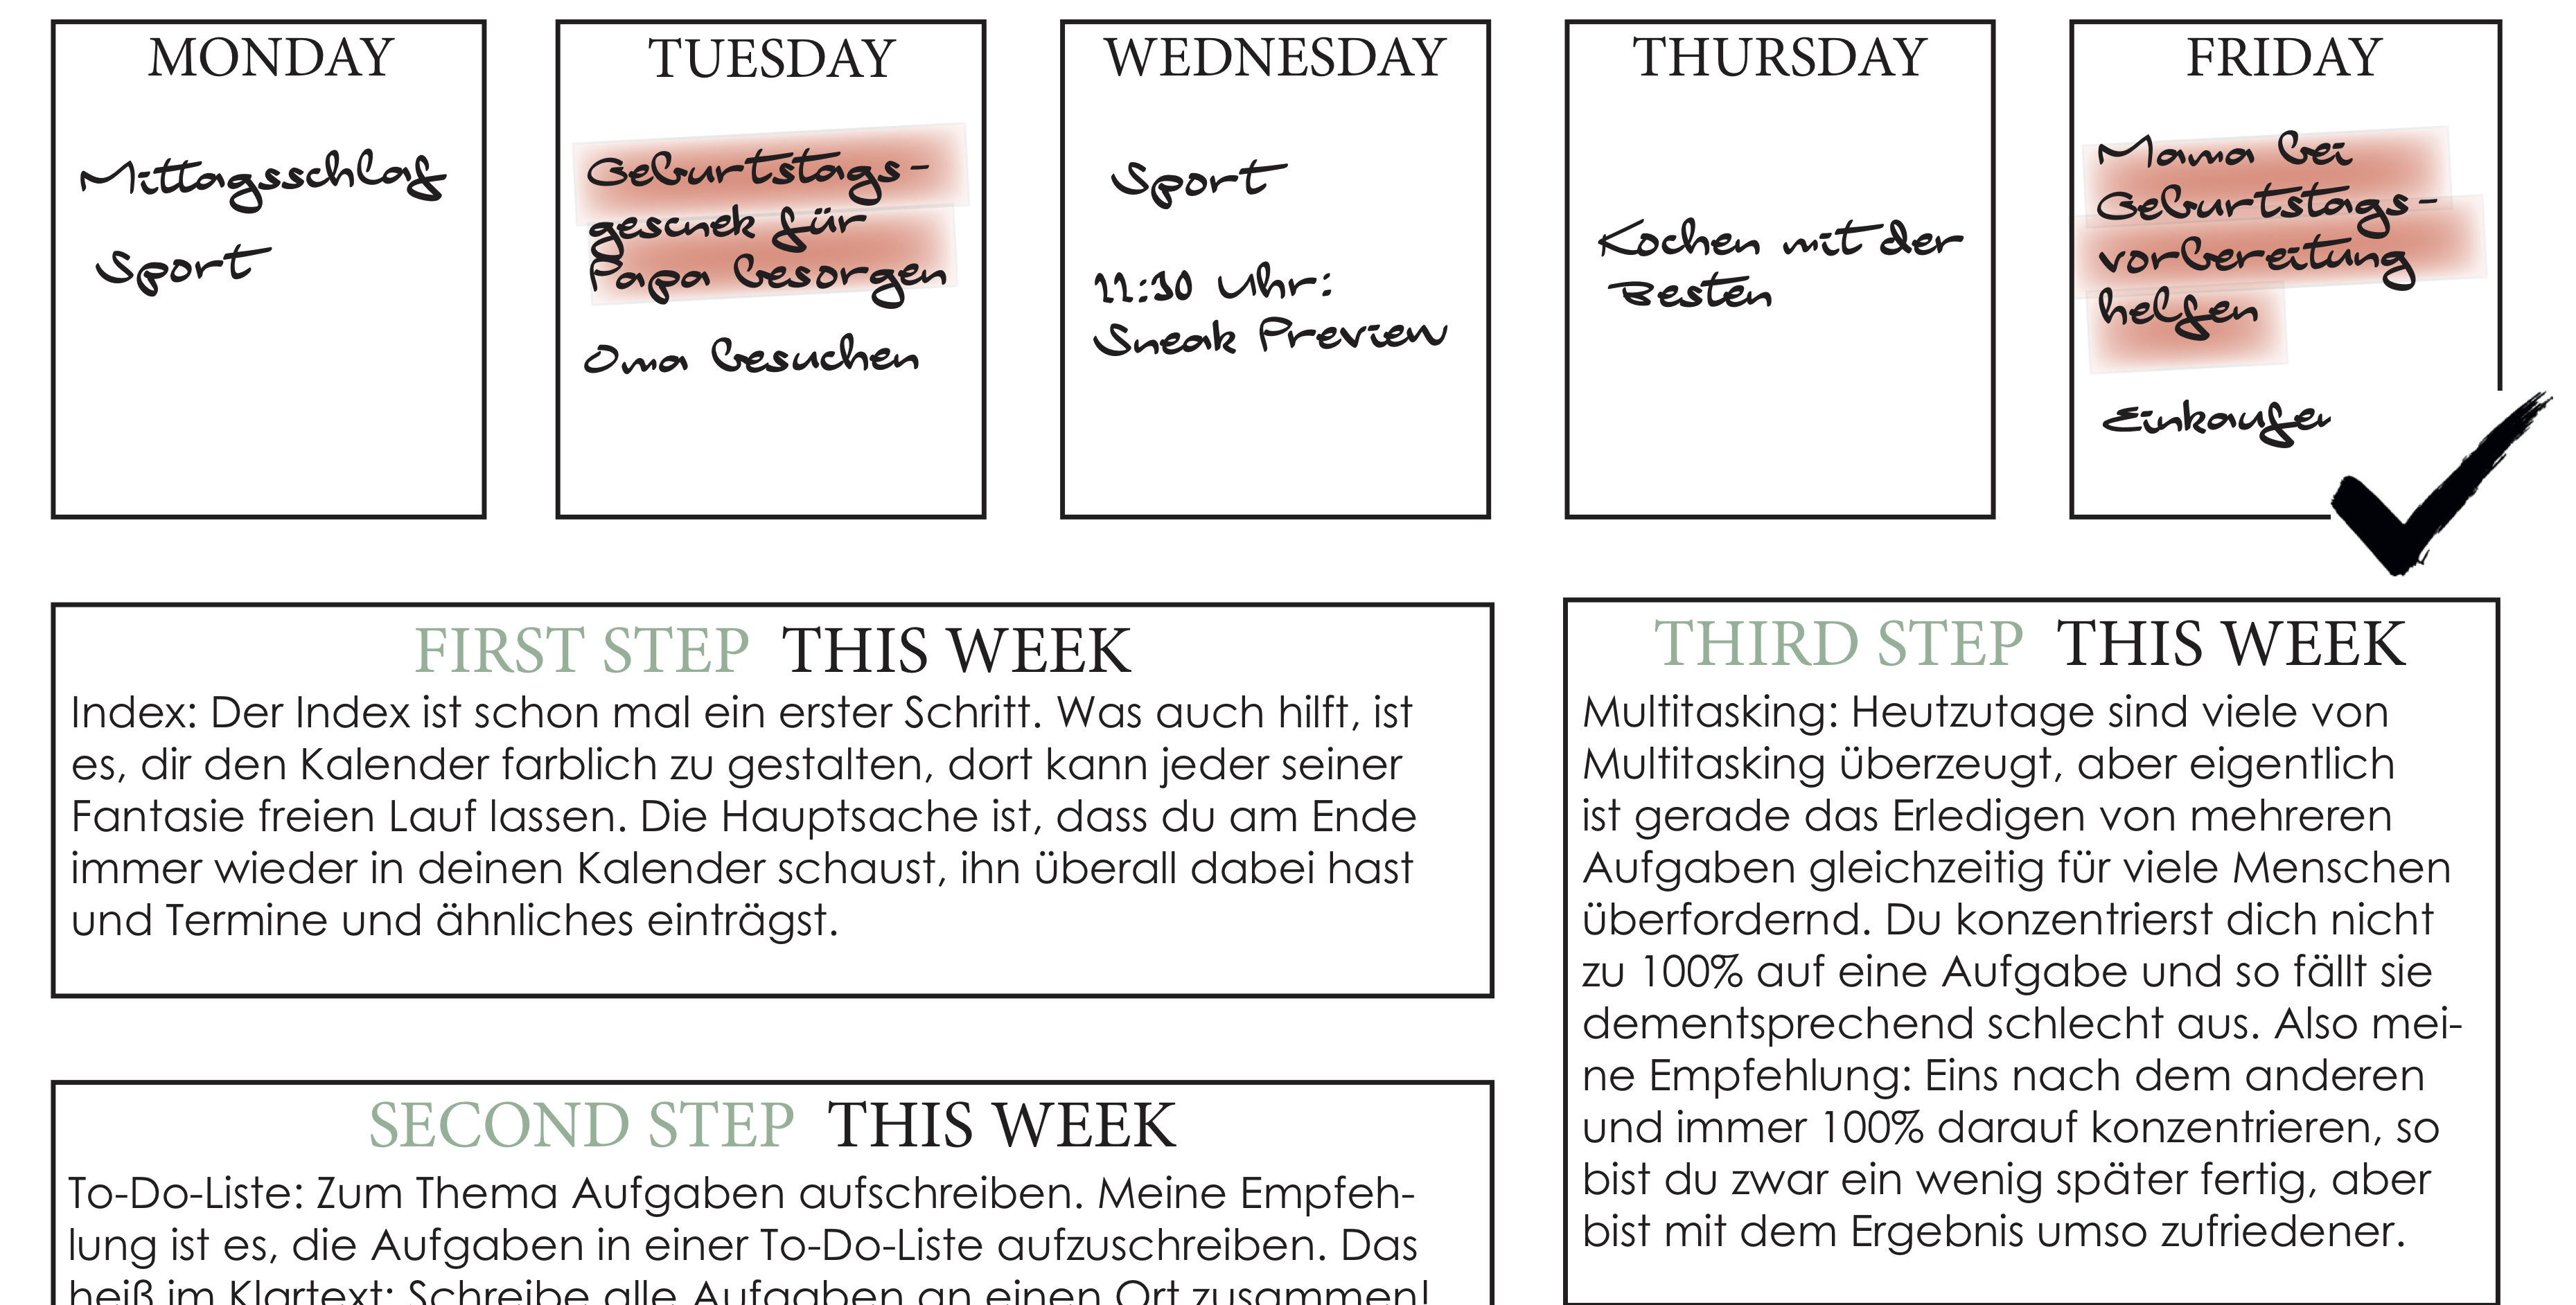 MONDAY
Mittagsschlaf
Sport
TUESDAY
Geburtstags-
gescnek für
Papa besorgen
Oma besuchen
WEDNESDAY
Sport
11:30 Uhr:
Sneak Preview
THURSDAY
Kochen mit der
Besten
FRIDAY
Mama bei
Geburtstags-
vorbereitung
helfen
Einkaufen
FIRST STEP THIS WEEK
Index: Der Index ist schon mal ein erster Schritt. Was auch hilft, ist
es, dir den Kalender farblich zu gestalten, dort kann jeder seiner
Fantasie freien Lauf lassen. Die Hauptsache ist, dass du am Ende
immer wieder in deinen Kalender schaust, ihn überall dabei hast
und Termine und ähnliches einträgst.
SECOND STEP THIS WEEK
To-Do-Liste: Zum Thema Aufgaben aufschreiben. Meine Empfeh-
lung ist es, die Aufgaben in einer To-Do-Liste aufzuschreiben. Das
heiß im Klartext: Schreibe alle Aufgaben an einen Ort zusammen!
THIRD STEP THIS WEEK
Multitasking: Heutzutage sind viele von
Multitasking überzeugt, aber eigentlich
ist gerade das Erledigen von mehreren
Aufgaben gleichzeitig für viele Menschen
überfordernd. Du konzentrierst dich nicht
zu 100% auf eine Aufgabe und so fällt sie
dementsprechend schlecht aus. Also mei-
ne Empfehlung: Eins nach dem anderen
und immer 100% darauf konzentrieren, so
bist du zwar ein wenig später fertig, aber
bist mit dem Ergebnis umso zufriedener.